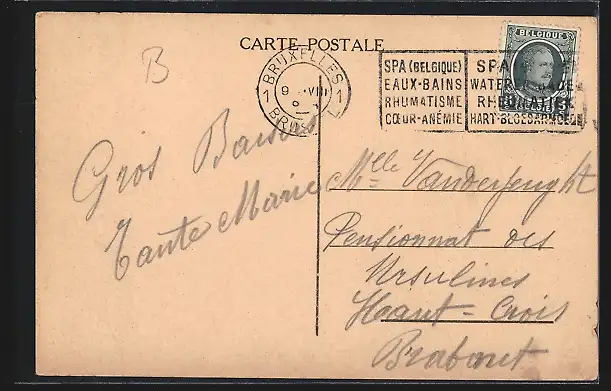 CARTE POSTALE
B
BELGIQUE
BRUXELLES
1 9 VIII 1
BRUSSEL
SPA (BELGIQUE)
EAUX-BAINS
RHUMATISME
CŒUR-ANÉMIE
SPA
WATER
HART-BLOEDARMOEDE
Gros Baisers
Tante Marie
Mlle Vanderfeught
Pensionnat des
Ursulines
Haut-Crois
Brabant